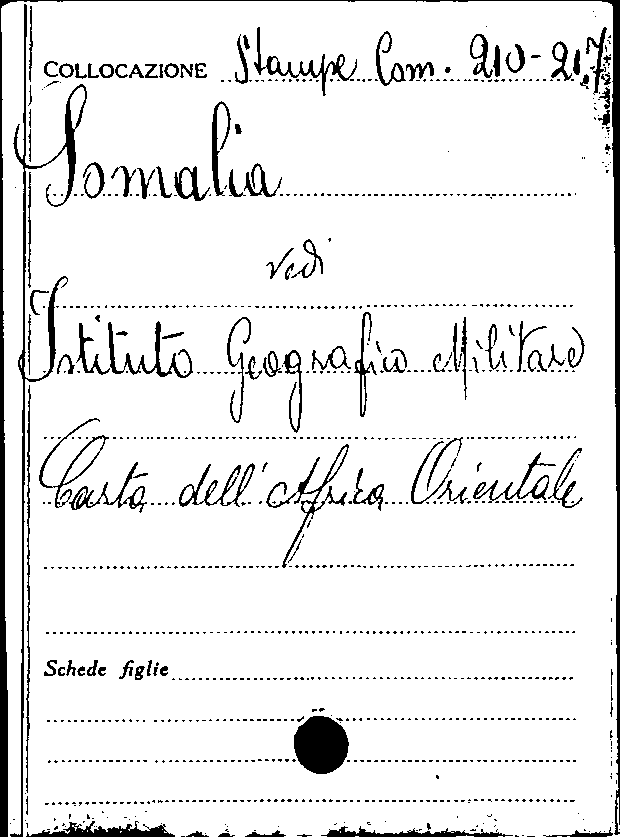 COLLOCAZIONE Stampe Com. 210-217
Somalia
vedi
Istituto Geografico Militare
Carta dell'Africa Orientale
Schede figlie